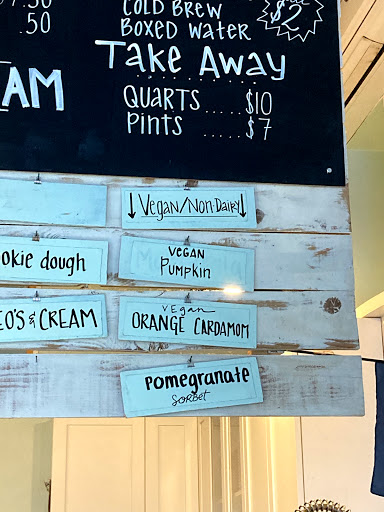 .50
COLD BREW
BOXED WATER
$2
TAKE AWAY
QUARTS ..... $10
PINTS ..... $7
AM
↓ VEGAN/NON-DAIRY ↓
okie dough
VEGAN
PUMPKIN
EO'S & CREAM
vegan
ORANGE CARDAMOM
pomegranate
SORBET